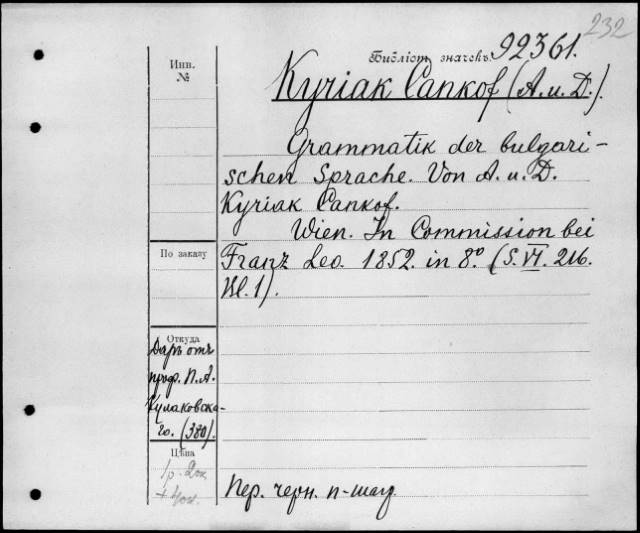 232
Библіот. значекъ 92361.
Инв.
№
Kyriak Cankof (A. u. D.).
Grammatik der bulgari-
schen Sprache. Von A. u. D.
Kyriak Cankof.
Wien. In Commission bei
По заказу
Franz Leo. 1852. in 8.° (S. VI. 216.
Bl. 1).
Откуда
Даръ отъ
проф. П. А.
Кулаковска-
го. (380).
Цѣна
Пер. черн. п-шагр.